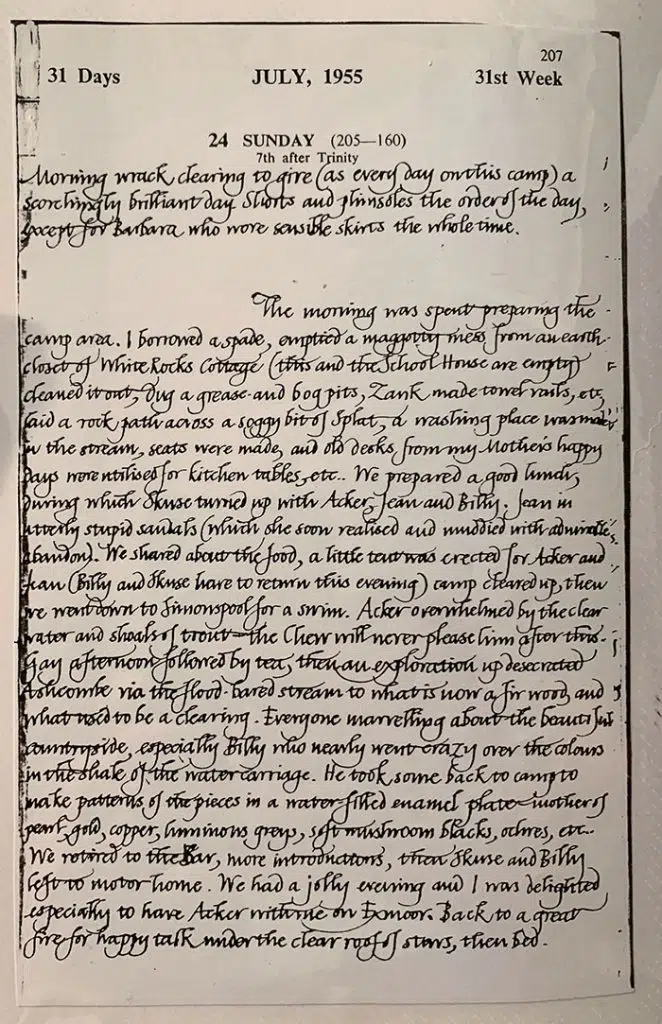 207
31 Days JULY, 1955 31st Week
24 SUNDAY (205—160)
7th after Trinity
Morning wrack clearing to give (as every day on this camp) a
scorchingly brilliant day. Shorts and plimsoles the order of the day,
except for Barbara who wore sensible skirts the whole time.
The morning was spent preparing the
camp area. I borrowed a spade, emptied a maggotty mess from an earth-
closet of White Rocks Cottage (this and the School House are empty)
cleaned it out, dug a grease- and bog pits, Zank made towel rails, etc,
laid a rock path across a soggy bit of Splat, a washing place was made
in the stream, seats were made, and old desks from my Mother's happy
days were utilised for kitchen tables, etc.. We prepared a good lunch,
during which Skuse turned up with Acker, Jean and Billy. Jean in
utterly stupid sandals (which she soon realised and muddied with admirable
abandon). We shared about the food, a little tent was erected for Acker and
Jean (Billy and Skuse have to return this evening) camp cleared up, then
we went down to Simonspool for a swim. Acker overwhelmed by the clear
water and shoals of trout - the Chew will never please him after this.
Gay afternoon followed by tea, then an exploration up desecrated
Ashcombe via the flood-bared stream to what is now a fir wood, and
what used to be a clearing. Everyone marvelling about the beautiful
countryside, especially Billy who nearly went crazy over the colours
in the shale of the water carriage. He took some back to camp to
make patterns of the pieces in a water-filled enamel plate - mother of
pearl, gold, copper, luminous greys, soft mushroom blacks, ochres, etc..
We retired to the Bar, more introductions, then Skuse and Billy
left to motor home. We had a jolly evening and I was delighted
especially to have Acker with me on Exmoor. Back to a great
fire for happy talk under the clear roof of stars, then bed.